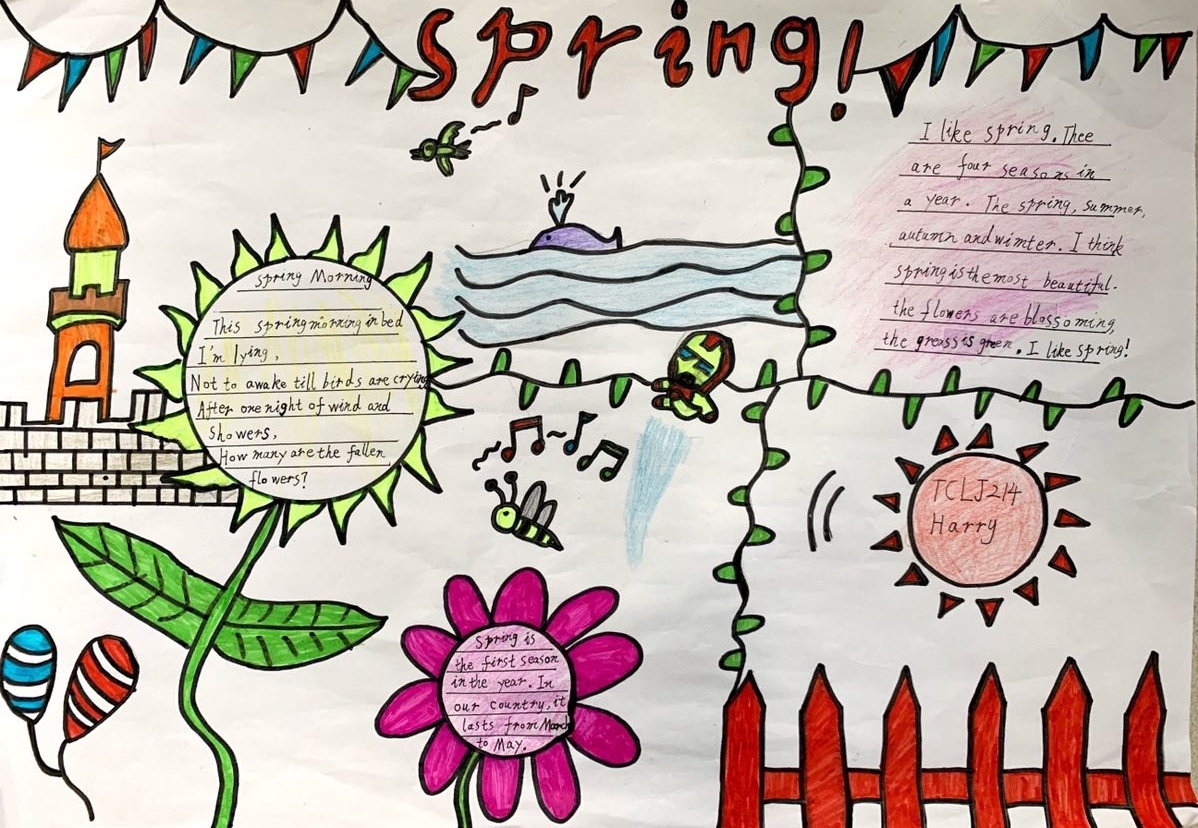 Spring!
I like spring. Thee
are four seasons in
a year. The spring, summer,
autumn and winter. I think
spring is the most beautiful.
the flowers are blossoming,
the grass is green. I like spring!
Spring Morning
This spring morning in bed
I'm lying,
Not to awake till birds are crying
After one night of wind and
showers,
How many are the fallen
flowers?
TCLJ214
Harry
Spring is
the first season
in the year. In
our country, it
lasts from March
to May.